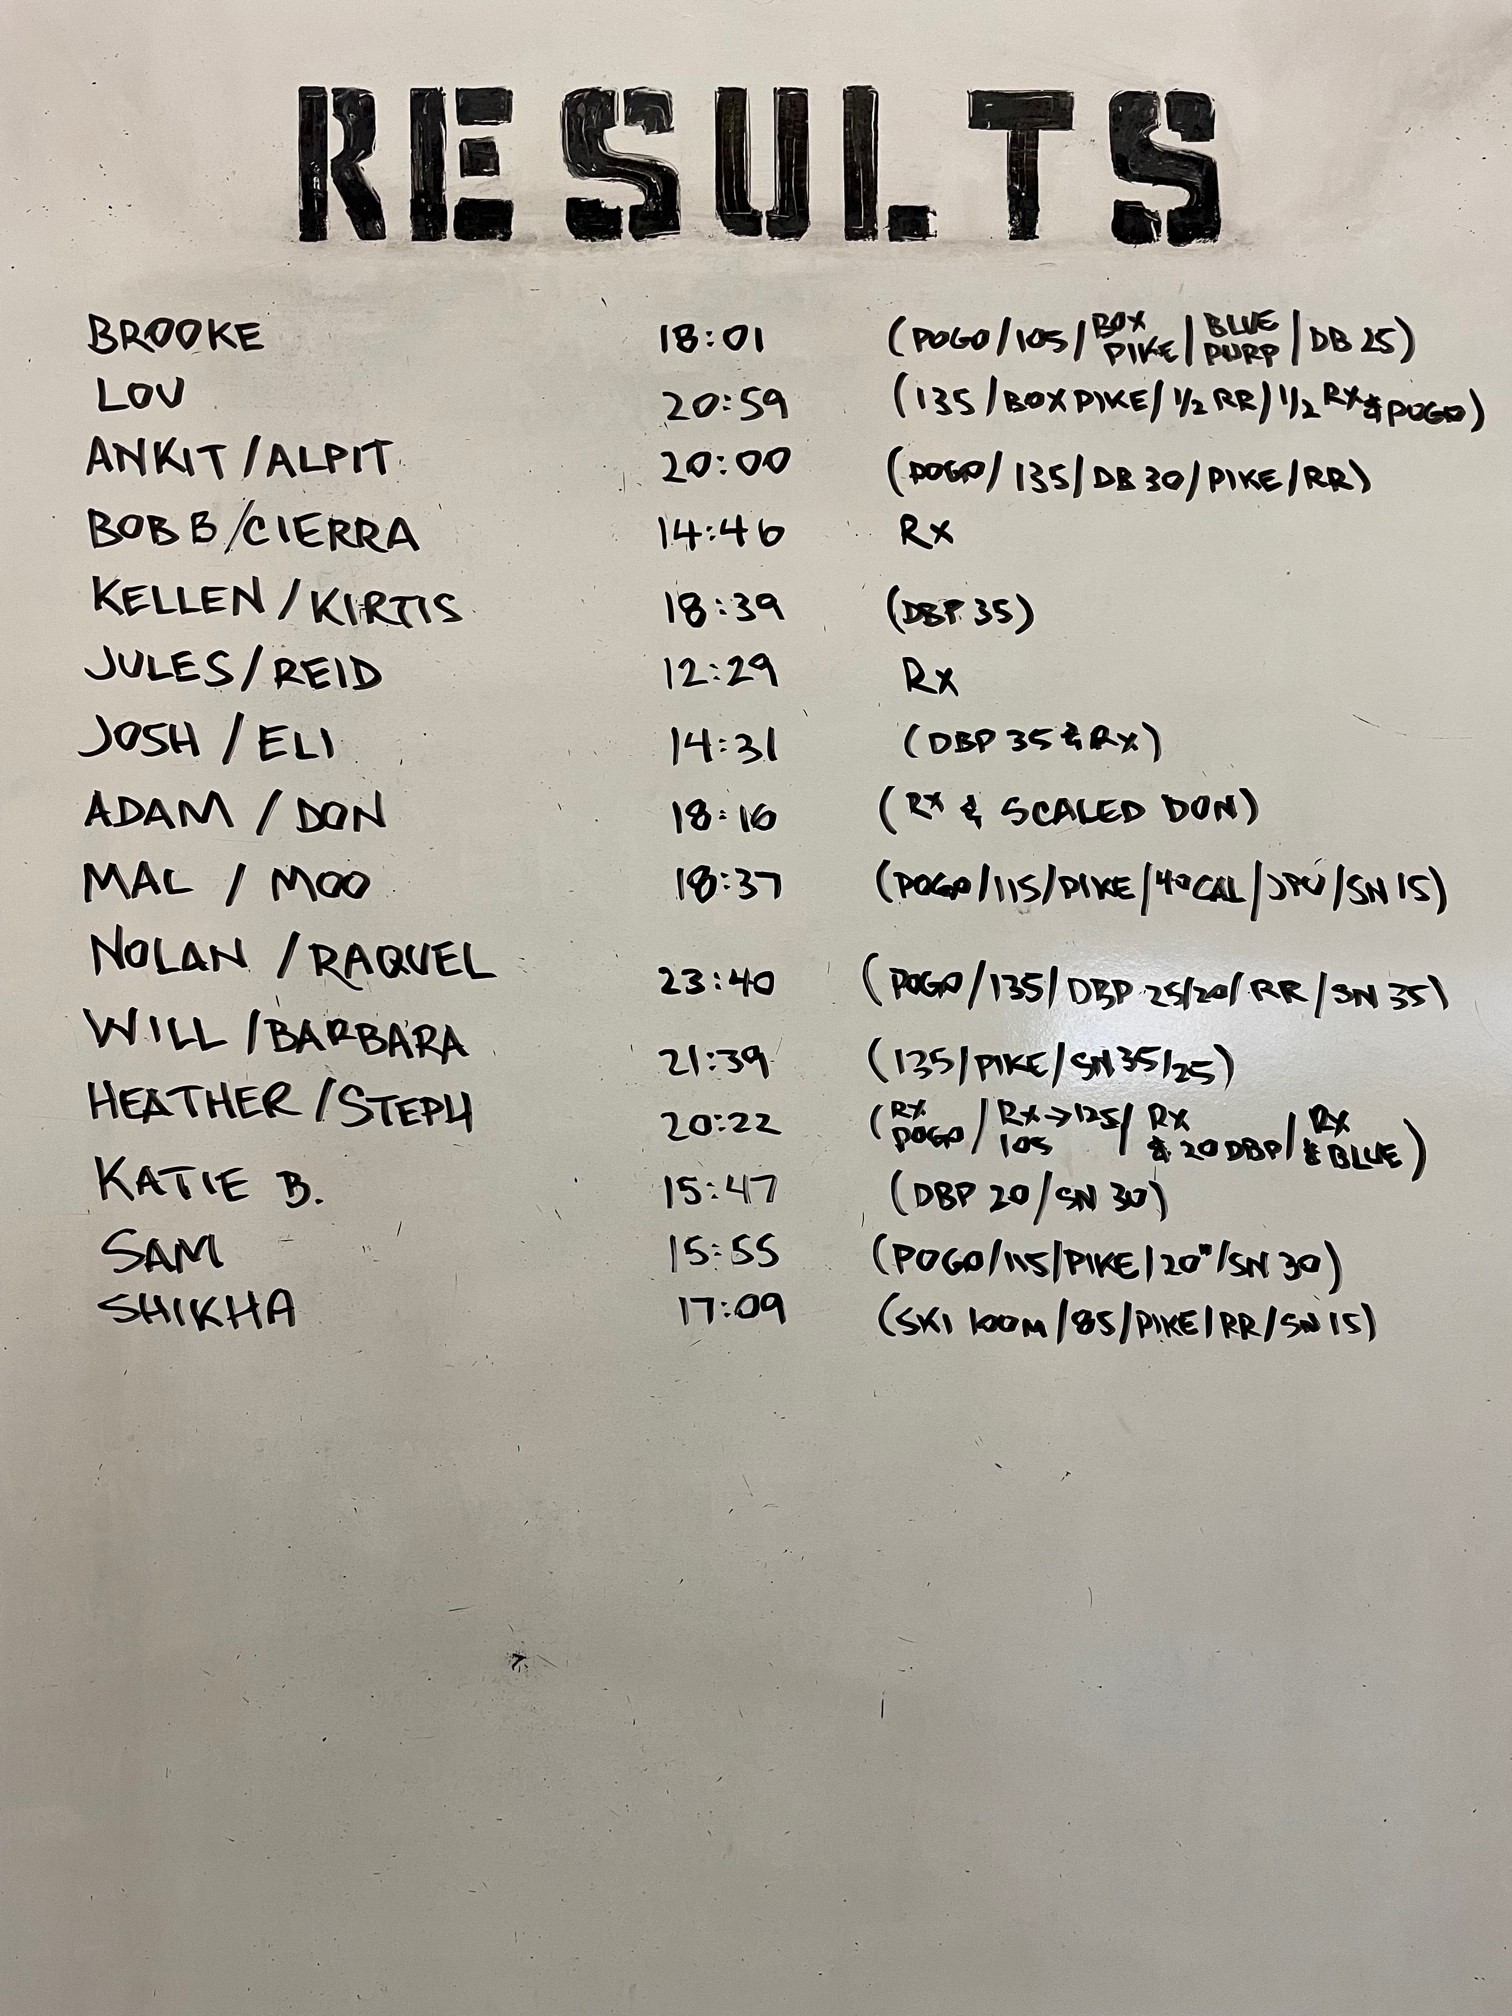 RESULTS
BROOKE 18:01 (POGO/105/BOX PIKE/BLUE PURP/DB 25)
LOU 20:59 (135/BOX PIKE/1/2 RR/1/2 RX & POGO)
ANKIT/ALPIT 20:00 (POGO/135/DB 30/PIKE/RR)
BOB B/CIERRA 14:46 Rx
KELLEN/KIRTIS 18:39 (DBP 35)
JULES/REID 12:29 Rx
JOSH/ELI 14:31 (DBP 35 & Rx)
ADAM/DON 18:16 (RX & SCALED DON)
MAL/MOO 18:37 (POGO/115/PIKE/40CAL/JPU/SN 15)
NOLAN/RAQUEL 23:40 (POGO/135/DBP 25/20/RR/SN 35)
WILL/BARBARA 21:39 (135/PIKE/SN 35/25)
HEATHER/STEPH 20:22 (RX POGO/RX→125 105/RX & 20 DBP/RX & BLUE)
KATIE B. 15:47 (DBP 20/SN 30)
SAM 15:55 (POGO/115/PIKE/20"/SN 30)
SHIKHA 17:09 (SKI 100M/85/PIKE/RR/SN 15)